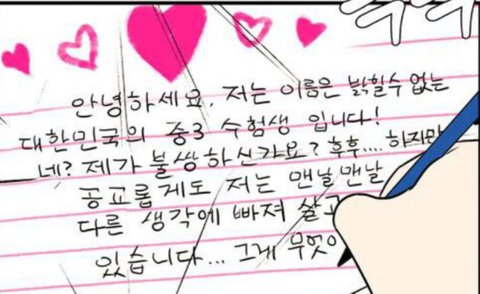 안녕하세요. 저는 이름은 밝힐수 없는
대한민국의 중3 수험생 입니다!
네? 제가 불쌍하신가요? 후후.... 하지만
공교롭게도 저는 맨날맨날
다른 생각에 빠져 살고
있습니다... 그게 무엇이